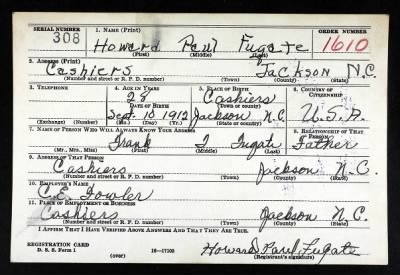 SERIAL NUMBER 1. NAME (Print) ORDER NUMBER
308 Howard Paul Fugate 1610
(First) (Middle) (Last)
2. ADDRESS (Print)
Cashiers Jackson N.C.
(Number and street or R. F. D. number) (Town) (County) (State)
3. TELEPHONE 4. AGE IN YEARS 5. PLACE OF BIRTH 6. COUNTRY OF CITIZENSHIP
28 Cashiers
DATE OF BIRTH (Town or county)
Sept. 10 1912 Jackson N.C. U.S.A.
(Exchange) (Number) (Mo.) (Day) (Yr.) (State or country)
7. NAME OF PERSON WHO WILL ALWAYS KNOW YOUR ADDRESS 8. RELATIONSHIP OF THAT PERSON
Frank Fugate Father
(Mr., Mrs., Miss) (First) (Middle) (Last)
9. ADDRESS OF THAT PERSON
Cashiers Jackson N.C.
(Number and street or R. F. D. number) (Town) (County) (State)
10. EMPLOYER'S NAME
C.E. Fowler
11. PLACE OF EMPLOYMENT OR BUSINESS
Cashiers Jackson N.C.
(Number and street or R. F. D. number) (Town) (County) (State)
I AFFIRM THAT I HAVE VERIFIED ABOVE ANSWERS AND THAT THEY ARE TRUE.
REGISTRATION CARD
D. S. S. Form 1 (over) Howard Paul Fugate
(Registrant's signature)